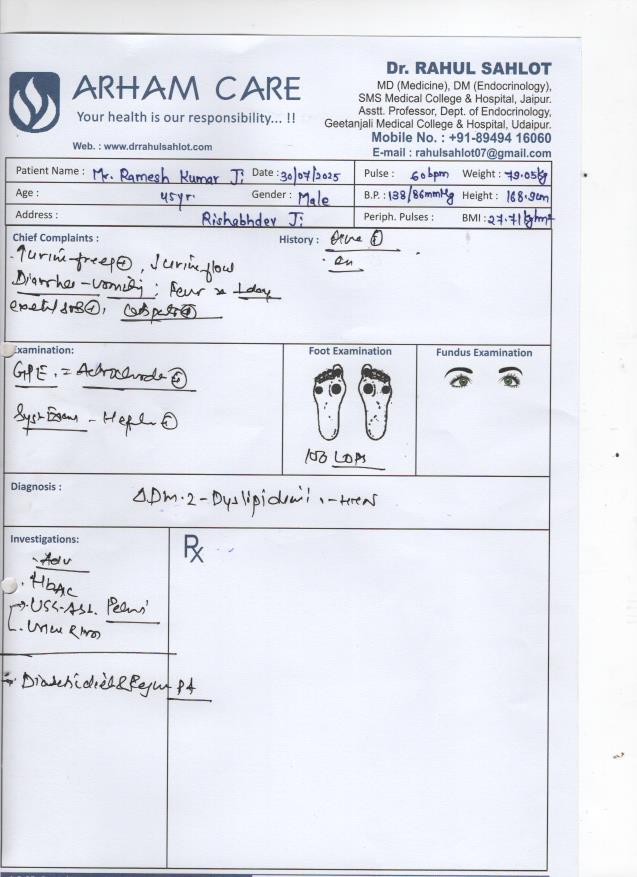 ARHAM CARE
Your health is our responsibility... !!
Web. : www.drrahulsahlot.com
Dr. RAHUL SAHLOT
MD (Medicine), DM (Endocrinology),
SMS Medical College & Hospital, Jaipur.
Asstt. Professor, Dept. of Endocrinology,
Geetanjali Medical College & Hospital, Udaipur.
Mobile No. : +91-89494 16060
E-mail : rahulsahlot07@gmail.com
Patient Name : Mr. Ramesh Kumar Ji Date : 30/07/2025 Pulse : 60 bpm Weight : 79.05kg
Age : 45yr. Gender : Male B.P. : 138/86mmHg Height : 168.9cm
Address : Rishabhdev Ji Periph. Pulses : BMI : 27.71 kg/m²
Chief Complaints : History :
↑urine freq ⊕, ↓urine flow
Diarrhea - vomiting ; Fever x 1 day
Examination: Foot Examination Fundus Examination
GPE
Syst Exam
LOPS
Diagnosis :
DM.2 - Dyslipidemi
Investigations: Rx
Adv
HbA1c
USG-Abd. Pelvis
Urine R
Diabetic diet & Regular PA